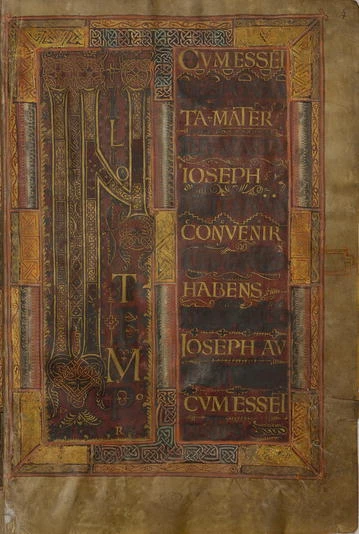 L
O
T
M
R
CVM ESSEI
TA·MATER
IOSEPH
CONVENIR
HABENS
IOSEPH AV
CVM ESSEI